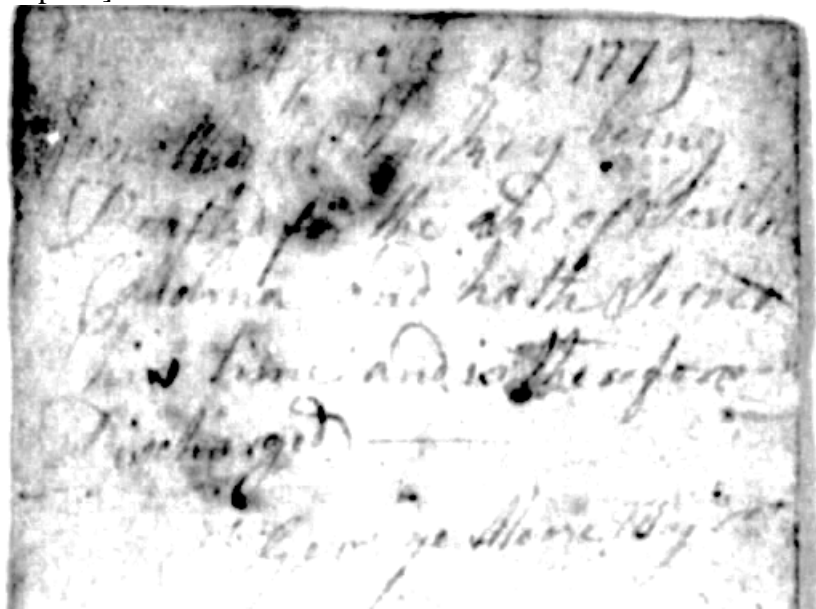 Aprile 15 1779
Jonathan being
Drafted for the aid of South
Calolina and hath Served
his time and is therefore
Discharged
George Moore